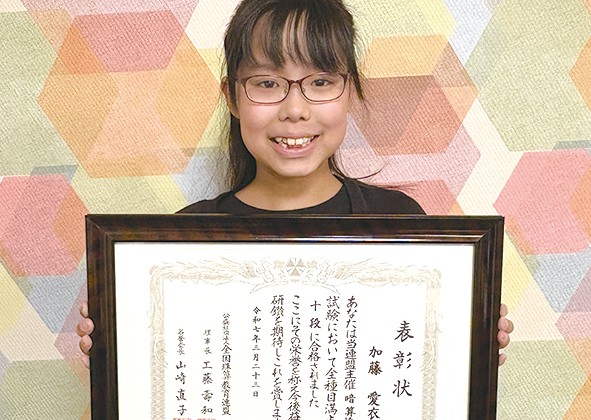 表彰状
加藤 愛衣
あなたは当連盟主催 暗算
試験において全種目満
十段に合格されました
ここにその栄誉を称え今後
研鑽を期待しこれを賞しま
令和七年三月二十三日
公益社団法人 全国珠算教育連盟
理事長 工藤 壽和
名誉会長 山崎 直子